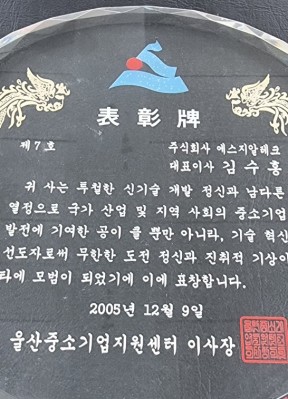 表彰牌
제7호
주식회사 에스지알테크
대표이사 김수홍
귀 사는 특월한 신기술 개발 정신과 남다른
열정으로 국가 산업 및 지역 사회의 중소기업
발전에 기여한 공이 클 뿐만 아니라, 기술 혁신
선도자로써 무한한 도전 정신과 진취적 기상이
타에 모범이 되었기에 이에 표창합니다.
2005년 12월 9일
울산중소기업지원센터 이사장